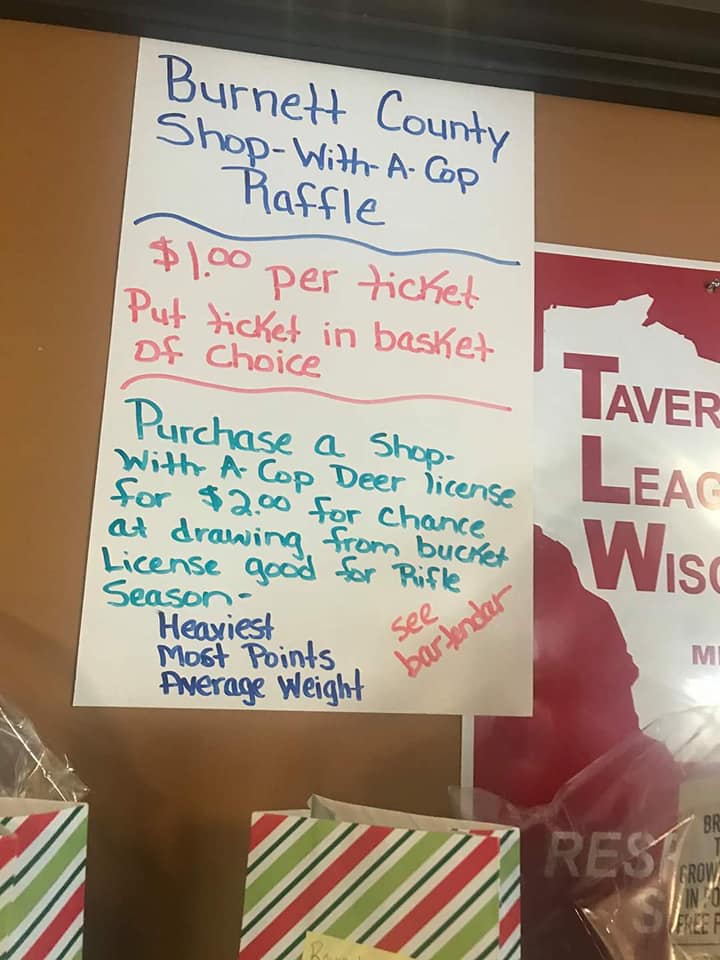 Burnett County
Shop-With-A-Cop
Raffle
$1.00 per ticket
Put ticket in basket
Of Choice
Purchase a Shop-
With-A-Cop Deer license
for $2.00 for Chance
at drawing from bucket
License good for Rifle
Season-
Heaviest
Most Points
Average Weight
see
bartendar
TAVER
LEAG
WISC
RES
BR
T
GROW
IN
FREE F